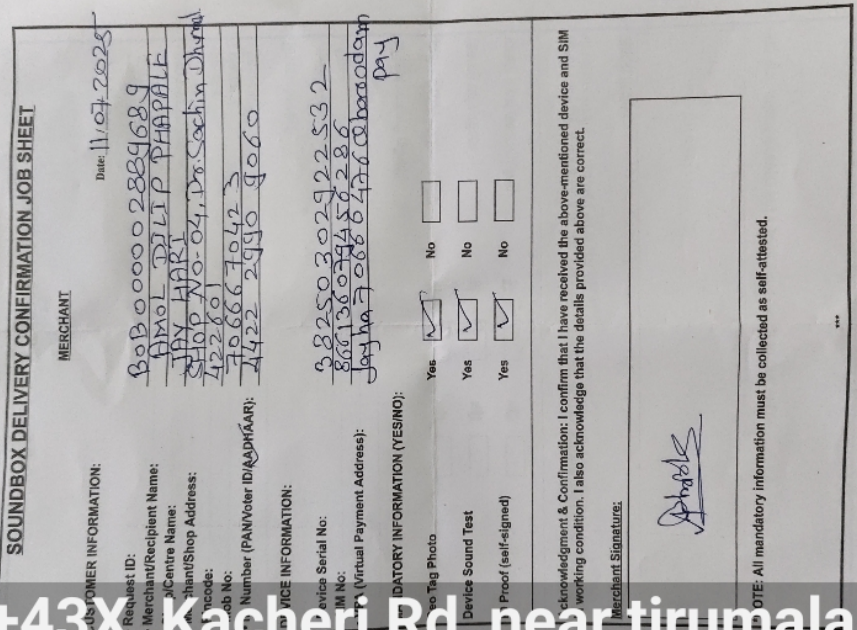 SOUNDBOX DELIVERY CONFIRMATION JOB SHEET
MERCHANT
USTOMER INFORMATION: Date: 11/07/2025
Request ID: BOB000002889689
Merchant/Recipient Name: AMOL DILIP PHAPALE
p/Centre Name: JAY HARI
chant/Shop Address: SHOP NO-04, Dr. Sachin Dhumal
ncode: 422601
ob No: 7066670423
Number (PAN/Voter ID/AADHAAR): 4422 2990 9060
VICE INFORMATION:
evice Serial No: 38250302922532
IM No:
(Virtual Payment Address):
pay
DATORY INFORMATION (YES/NO):
eo Tag Photo Yes No
Device Sound Test Yes No
Proof (self-signed) Yes No
cknowledgment & Confirmation: I confirm that I have received the above-mentioned device and SIM
working condition. I also acknowledge that the details provided above are correct.
Merchant Signature:
OTE: All mandatory information must be collected as self-attested.
***
+43X, Kacheri Rd, near tirumala